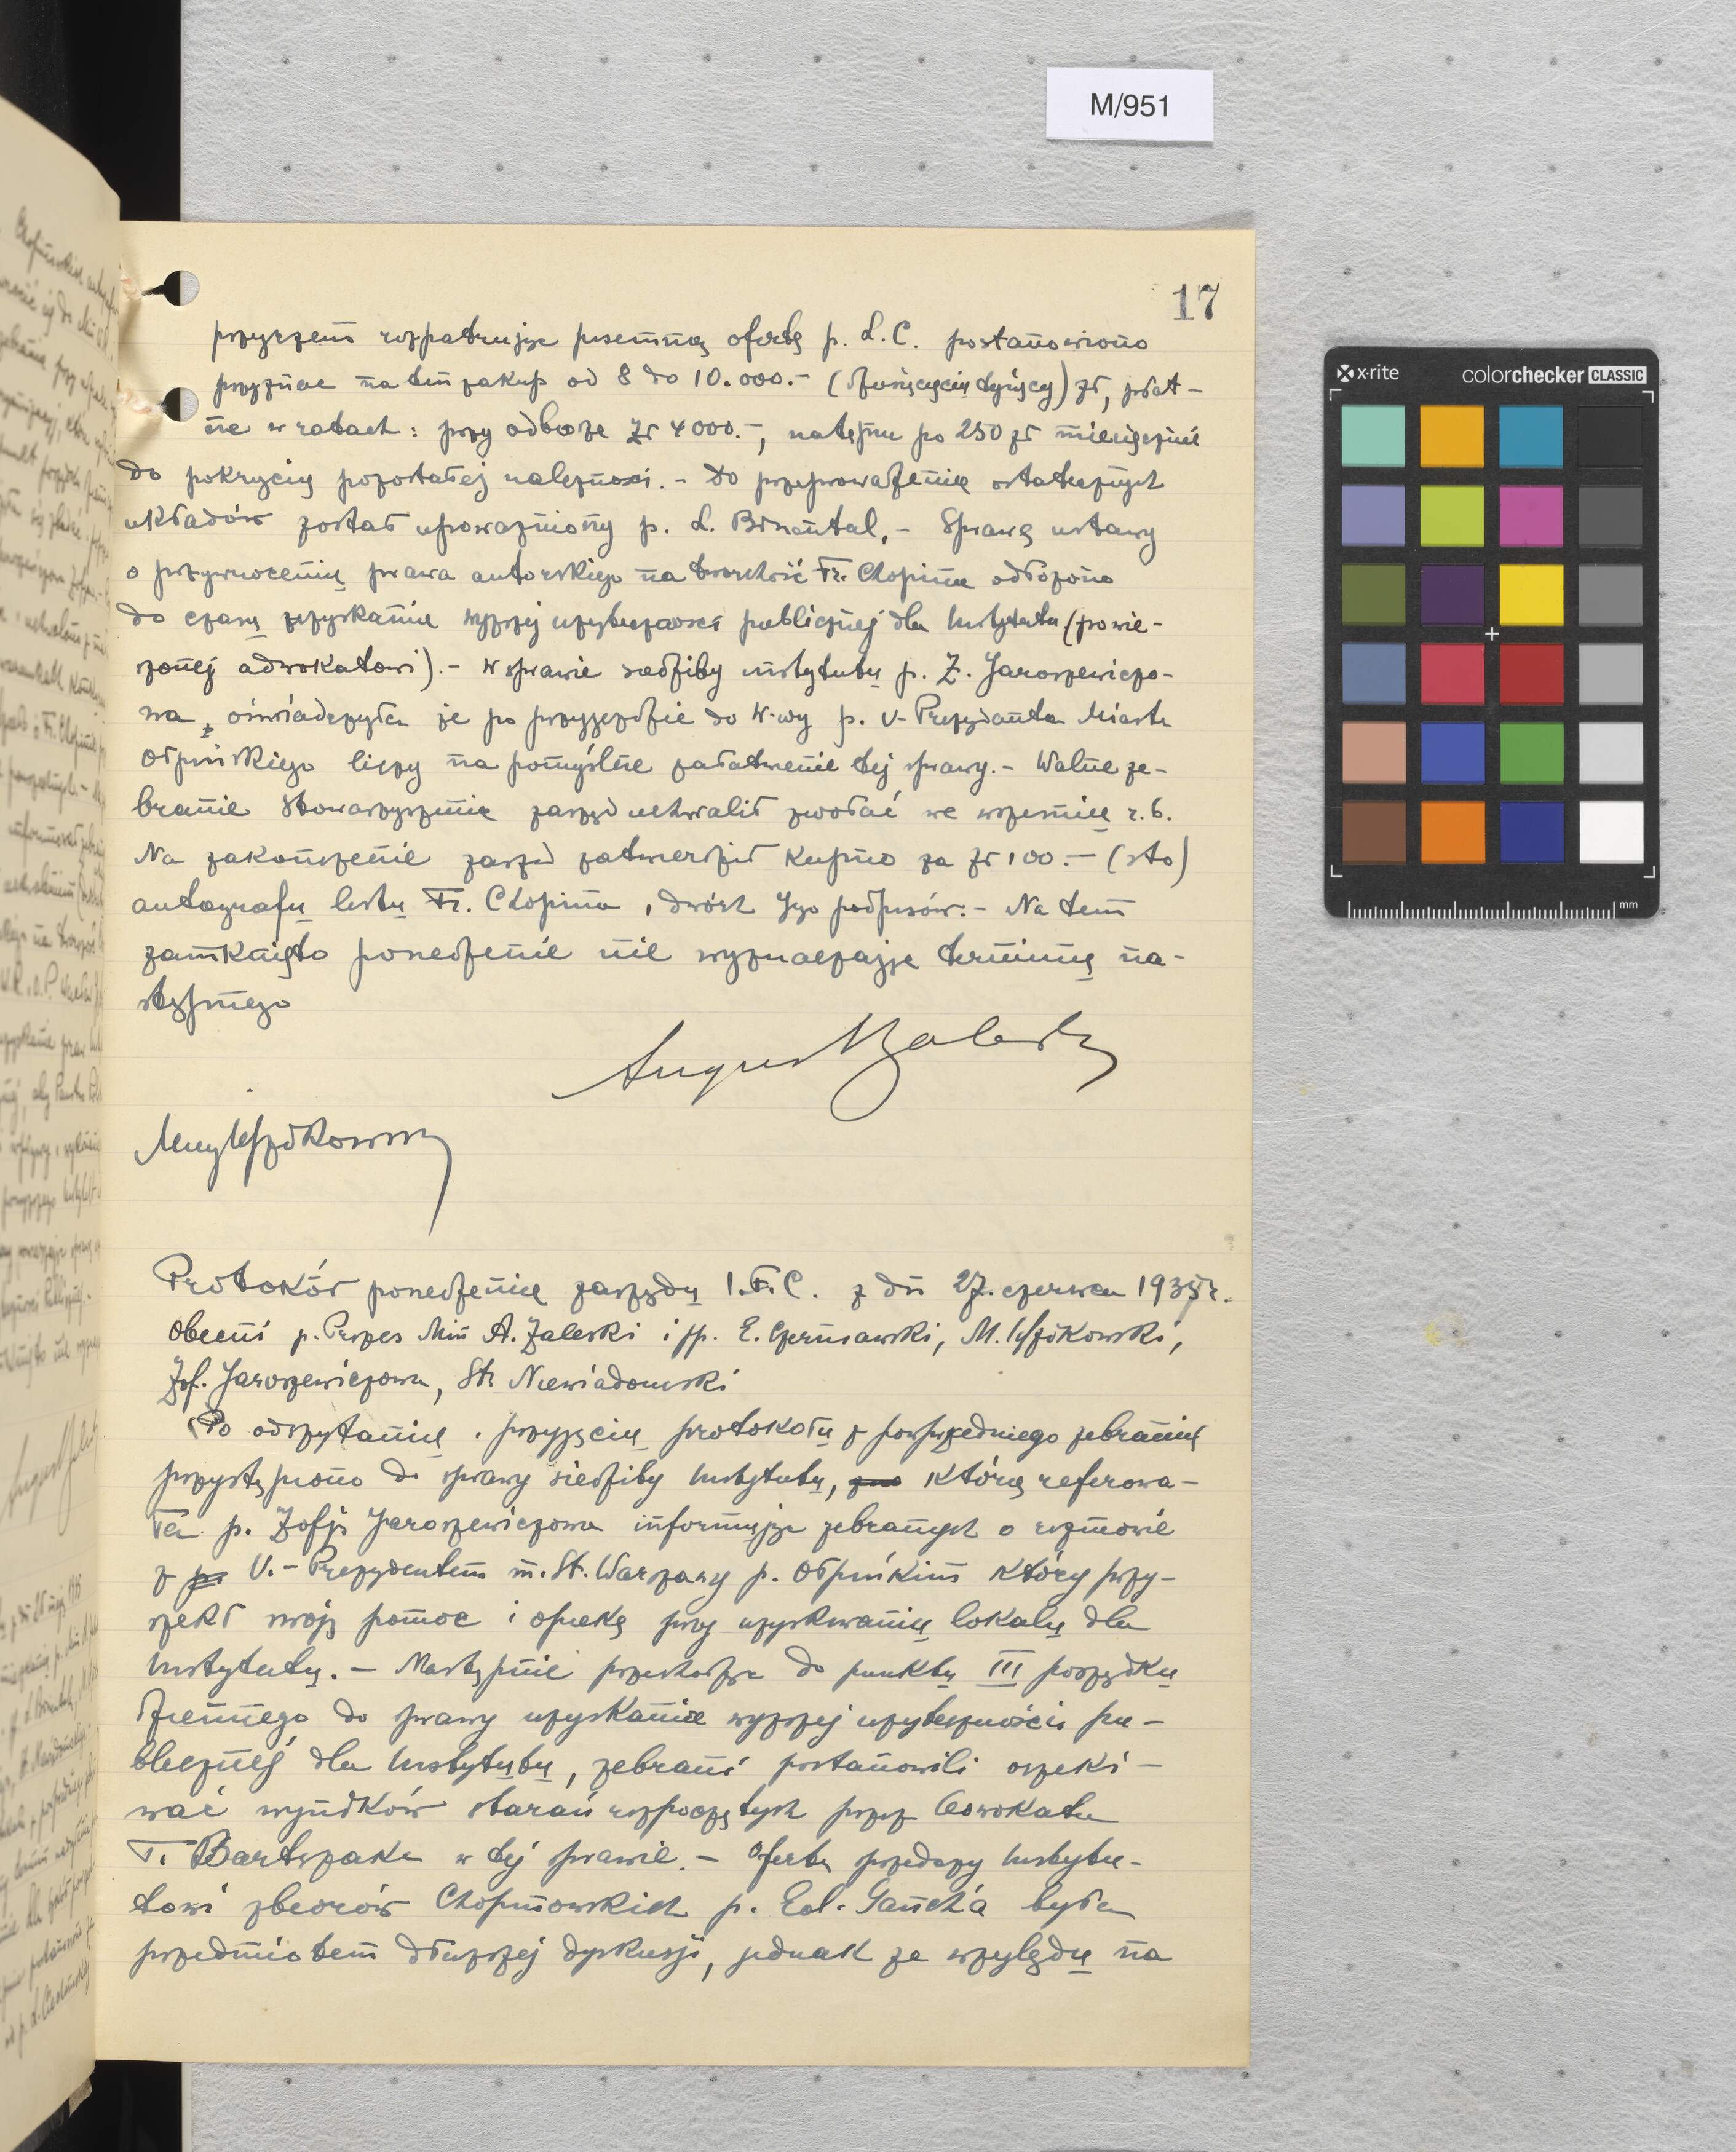 M/951
x·rite
colorchecker CLASSIC
mm
17
przyczem rozpatrując pisemną ofertę p. L.C. postanowiono
przyznać na ten zakup od 8 do 10.000.- (dziesięciu tysięcy) zł, płat-
ne w ratach: przy odbiorze zł 4000.-, następnie po 250 zł miesięcznie
do pokrycia pozostałej należności. - Do przeprowadzenia ostatecznych
układów został upoważniony p. L. Binental. - Sprawę ustawy
o przywróceniu prawa autorskiego na twórczość Fr. Chopina odłożono
do czasu uzyskania wyższej użyteczności publicznej dla Instytutu (powie-
rzonej adwokatowi). - W sprawie siedziby instytutu p. Z. Jaroszewiczo-
wa, oświadczyła że po przyjeździe do W-wy p. V-Prezydenta Miasta
Ołpińskiego liczy na pomyślne załatwienie tej sprawy. - Walne ze-
branie Stowarzyszenia zarząd uchwalił zwołać we wrześniu r.b.
Na zakończenie zarząd zatwierdził kupno za zł 100.- (sto)
autografu listu Fr. Chopina, dwóch Jego podpisów. - Na tem
zamknięto posiedzenie nie wyznaczając terminu na-
stępnego
August Zaleski
M Idzikowski
Protokół posiedzenia zarządu I.F.C. z dn 27. czerwca 1935 r.
Obecni p. Prezes Min A. Zaleski i pp. E. Czerniawski, M. Idzikowski,
Zof. Jaroszewiczowa, St. Niewiadomski
Po odczytaniu i przyjęciu protokołu z poprzedniego zebrania
przystąpiono do sprawy siedziby Instytutu, którą referowa-
ła p. Zofja Jaroszewiczowa informując zebranych o rozmowie
z V.-Prezydentem m. St. Warszawy p. Ołpińskim który przy-
rzekł swoją pomoc i opiekę przy uzyskiwaniu lokalu dla
Instytutu. - Następnie przechodząc do punktu III porządku
dziennego do sprawy uzyskania wyższej użyteczności pu-
blicznej dla Instytutu, zebrani postanowili oczeki-
wać wyników starań rozpoczętych przez Adwokata
T. Bartczaka w tej sprawie. - Oferta sprzedaży Instytu-
towi zbiorów Chopinowskich p. Ed. Ganche'a była
przedmiotem dłuższej dyskusji, jednak ze względu na